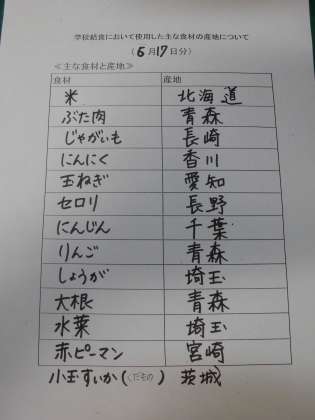 学校給食において使用した主な食材の産地について
(6月17日分)
≪主な食材と産地≫
食材 産地
米 北海道
ぶた肉 青森
じゃがいも 長崎
にんにく 香川
玉ねぎ 愛知
セロリ 長野
にんじん 千葉
りんご 青森
しょうが 埼玉
大根 青森
水菜 埼玉
赤ピーマン 宮崎
小玉すいか(くだもの) 茨城